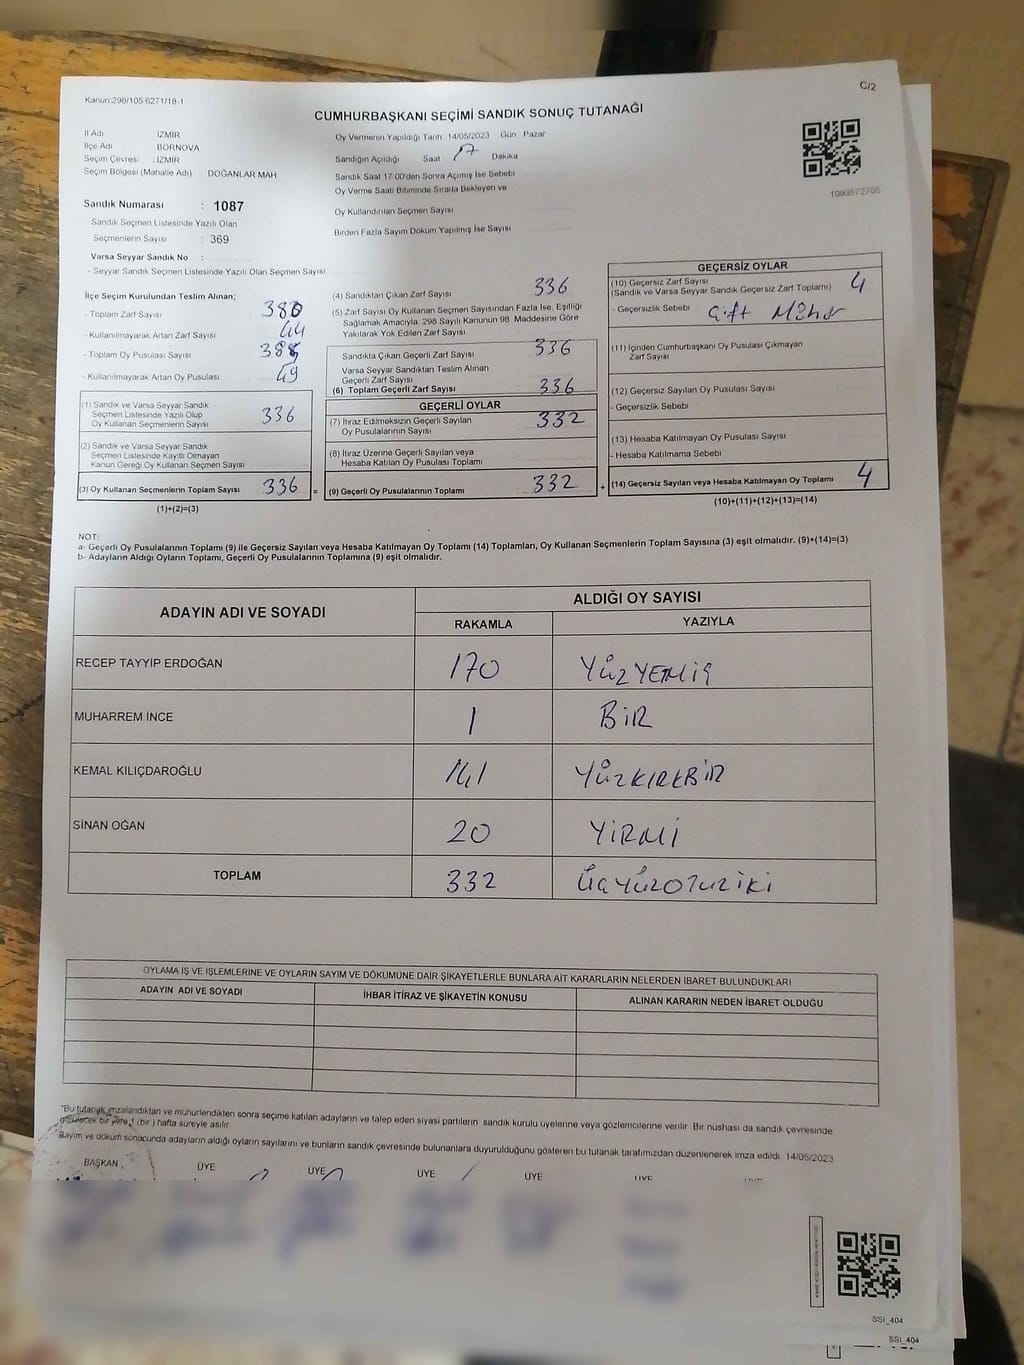 Kanun.298/105 6271/18-1
C/2
CUMHURBAŞKANI SEÇİMİ SANDIK SONUÇ TUTANAĞI
İl Adı İZMİR
İlçe Adı BORNOVA
Seçim Çevresi : İZMİR
Seçim Bölgesi (Mahalle Adı) DOĞANLAR MAH
Oy Vermenin Yapıldığı Tarih 14/05/2023 Gün Pazar
Sandığın Açıldığı Saat 17 Dakika
Sandık Saat 17:00'den Sonra Açılmış İse Sebebi
Oy Verme Saati Bitiminde Sırada Bekleyen ve
Oy Kullandırılan Seçmen Sayısı
Birden Fazla Sayım Döküm Yapılmış İse Sayısı
1093572705
Sandık Numarası : 1087
Sandık Seçmen Listesinde Yazılı Olan
Seçmenlerin Sayısı : 369
Varsa Seyyar Sandık No :
- Seyyar Sandık Seçmen Listesinde Yazılı Olan Seçmen Sayısı
İlçe Seçim Kurulundan Teslim Alınan;
- Toplam Zarf Sayısı 380
- Kullanılmayarak Artan Zarf Sayısı 44
- Toplam Oy Pusulası Sayısı
- Kullanılmayarak Artan Oy Pusulası 49
(1) Sandık ve Varsa Seyyar Sandık
Seçmen Listesinde Yazılı Olup
Oy Kullanan Seçmenlerin Sayısı 336
(2) Sandık ve Varsa Seyyar Sandık
Seçmen Listesinde Kayıtlı Olmayan
Kanun Gereği Oy Kullanan Seçmen Sayısı
(3) Oy Kullanan Seçmenlerin Toplam Sayısı 336 =
(1)+(2)=(3)
(4) Sandıktan Çıkan Zarf Sayısı 336
(5) Zarf Sayısı Oy Kullanan Seçmen Sayısından Fazla İse, Eşitliği
Sağlamak Amacıyla, 298 Sayılı Kanunun 98. Maddesine Göre
Yakılarak Yok Edilen Zarf Sayısı
Sandıkta Çıkan Geçerli Zarf Sayısı 336
Varsa Seyyar Sandıktan Teslim Alınan
Geçerli Zarf Sayısı
(6) Toplam Geçerli Zarf Sayısı 336
GEÇERLİ OYLAR
(7) İtiraz Edilmeksizin Geçerli Sayılan
Oy Pusulalarının Sayısı 332
(8) İtiraz Üzerine Geçerli Sayılan veya
Hesaba Katılan Oy Pusulası Toplamı
(9) Geçerli Oy Pusulalarının Toplamı 332 +
GEÇERSİZ OYLAR
(10) Geçersiz Zarf Sayısı
(Sandık ve Varsa Seyyar Sandık Geçersiz Zarf Toplamı) 4
- Geçersizlik Sebebi Çift Mühür
(11) İçinden Cumhurbaşkanı Oy Pusulası Çıkmayan
Zarf Sayısı
(12) Geçersiz Sayılan Oy Pusulası Sayısı
- Geçersizlik Sebebi
(13) Hesaba Katılmayan Oy Pusulası Sayısı
- Hesaba Katılmama Sebebi
(14) Geçersiz Sayılan veya Hesaba Katılmayan Oy Toplamı 4
(10)+(11)+(12)+(13)=(14)
NOT:
a- Geçerli Oy Pusulalarının Toplamı (9) ile Geçersiz Sayılan veya Hesaba Katılmayan Oy Toplamı (14) Toplamları, Oy Kullanan Seçmenlerin Toplam Sayısına (3) eşit olmalıdır. (9)+(14)=(3)
b- Adayların Aldığı Oyların Toplamı, Geçerli Oy Pusulalarının Toplamına (9) eşit olmalıdır.
ADAYIN ADI VE SOYADI ALDIĞI OY SAYISI
RAKAMLA YAZIYLA
RECEP TAYYİP ERDOĞAN 170 YÜZYETMİŞ
MUHARREM İNCE 1 BİR
KEMAL KILIÇDAROĞLU 141 YÜZKIRKBİR
SİNAN OĞAN 20 YİRMİ
TOPLAM 332 ÜÇYÜZOTUZİKİ
OYLAMA İŞ VE İŞLEMLERİNE VE OYLARIN SAYIM VE DÖKÜMÜNE DAİR ŞİKAYETLERLE BUNLARA AİT KARARLARIN NELERDEN İBARET BULUNDUKLARI
ADAYIN ADI VE SOYADI İHBAR İTİRAZ VE ŞİKAYETİN KONUSU ALINAN KARARIN NEDEN İBARET OLDUĞU
*Bu tutanak imzalandıktan ve mühürlendikten sonra seçime katılan adayların ve talep eden siyasi partilerin sandık kurulu üyelerine veya gözlemcilerine verilir. Bir nüshası da sandık çevresinde
görülecek bir yere 1 (bir) hafta süreyle asılır.
Sayım ve döküm sonucunda adayların aldığı oyların sayılarını ve bunların sandık çevresinde bulunanlara duyurulduğunu gösteren bu tutanak tarafımızdan düzenlenerek imza edildi. 14/05/2023
BAŞKAN ÜYE ÜYE ÜYE ÜYE ÜYE
SSI_404
SSI_404